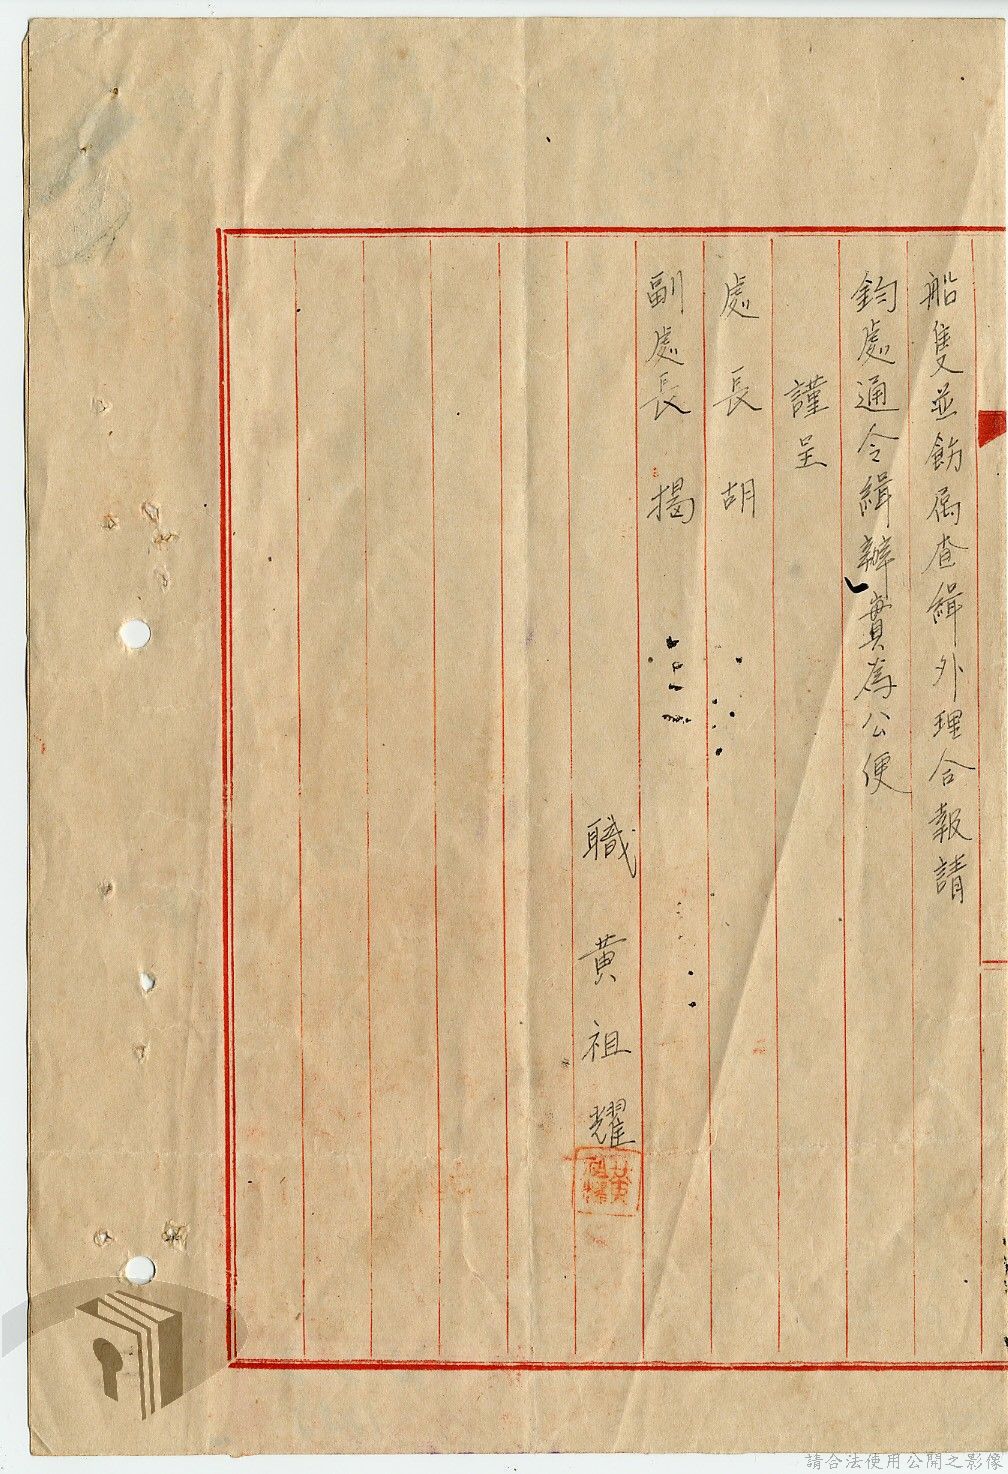 船隻並飭属查緝外理合報請
鈞處通令緝辦實為公便
謹呈
處長胡
副處長揭
職黃祖耀
請合法使用公開之影像